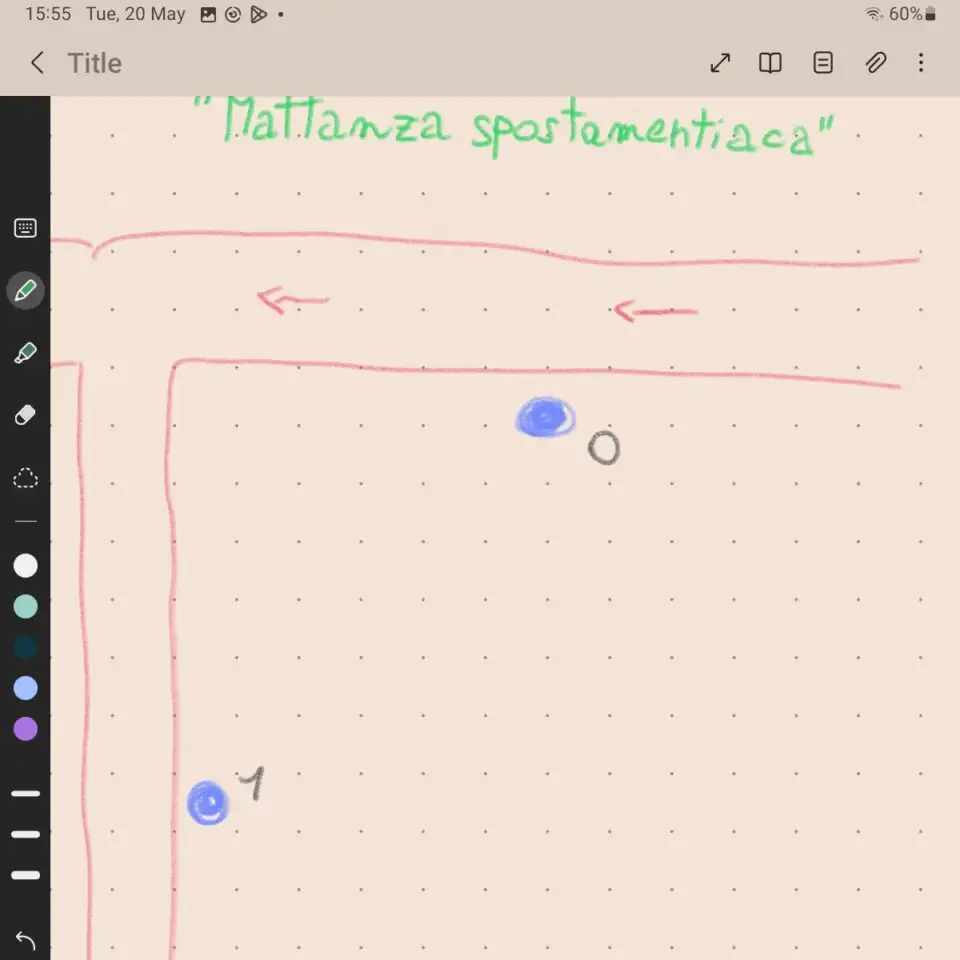 15:55 Tue, 20 May 60%
Title
"Mattanza spostamentiaca"
0
1